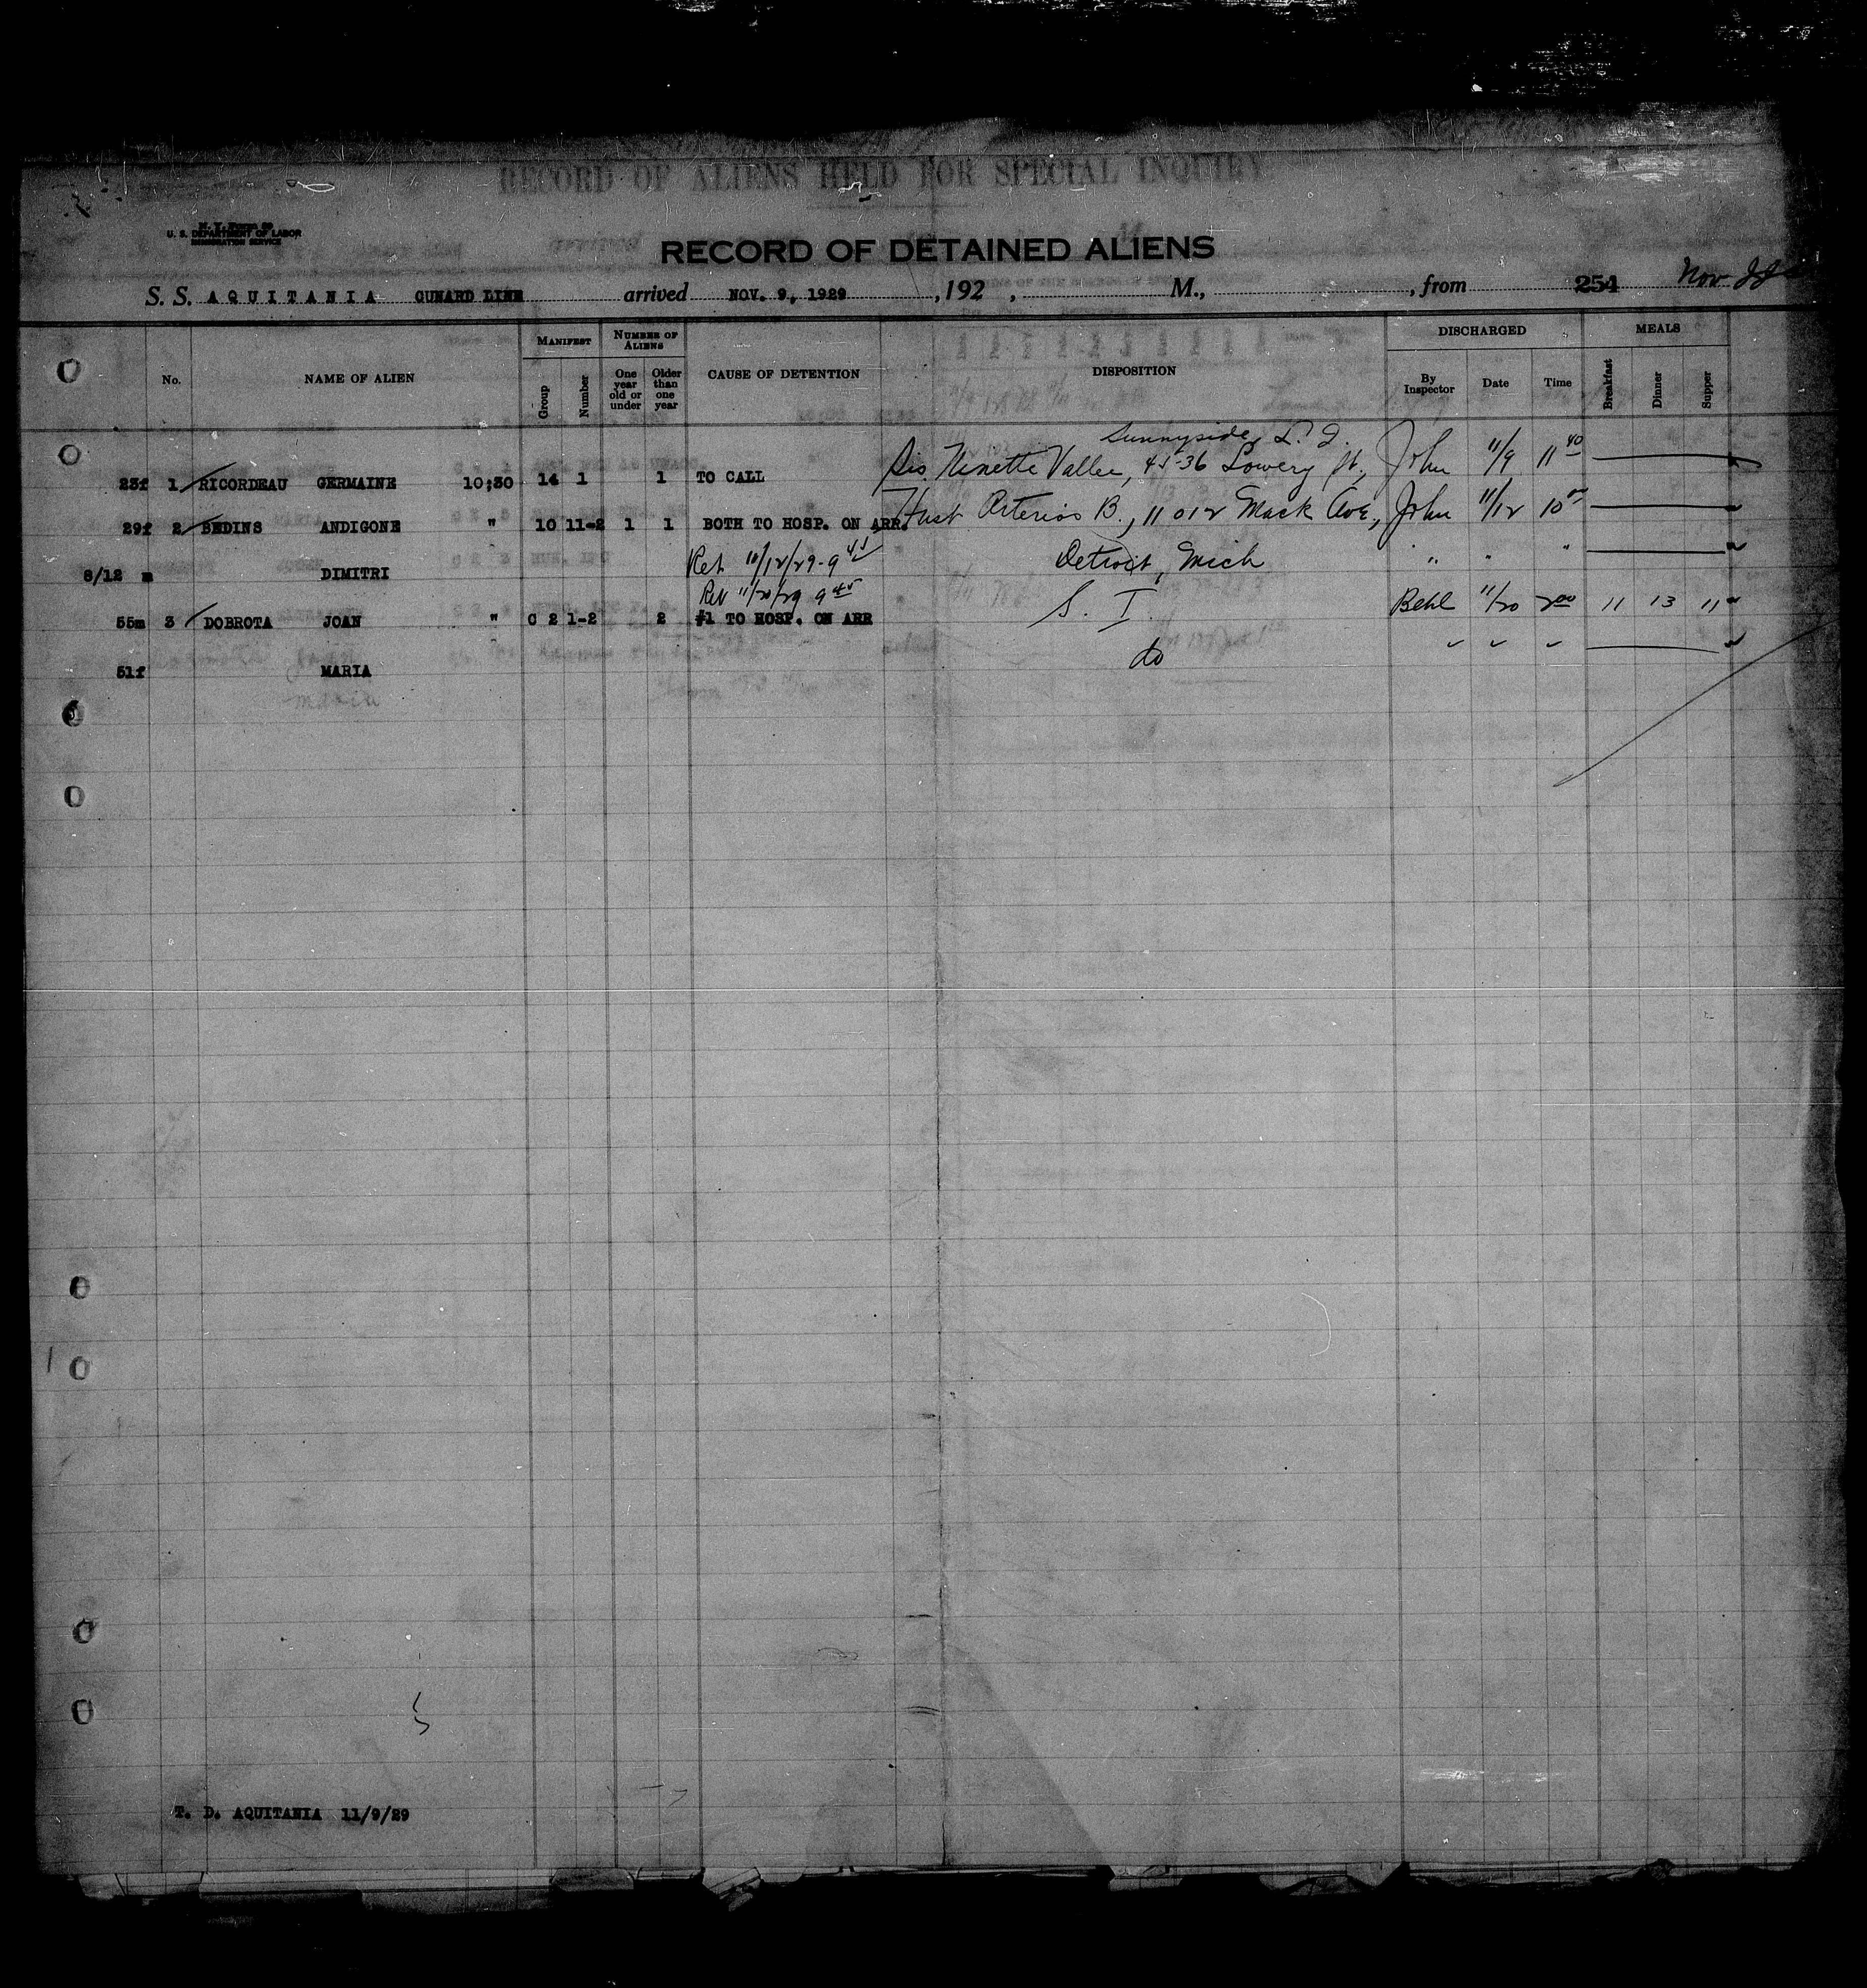 RECORD OF ALIENS HELD FOR SPECIAL INQUIRY
N. Y. Form 99
U. S. DEPARTMENT OF LABOR
IMMIGRATION SERVICE
RECORD OF DETAINED ALIENS
S. S. AQUITANIA CUNARD LINE arrived NOV. 9, 1929 , 192 , M., , from 254 Nov
DISCHARGED MEALS
MANIFEST NUMBER OF ALIENS
No. NAME OF ALIEN Group Number One year old or under Older than one year CAUSE OF DETENTION DISPOSITION By Inspector Date Time Breakfast Dinner Supper
Sunnyside, L. I.
23f 1 RICORDEAU GERMAINE 10;30 14 1 1 TO CALL Sis. Ninette Vallee, 45-36 Lowery St., John 11/9 11 40
29f 2 BEDINS ANDIGONE " 10 11-2 1 1 BOTH TO HOSP. ON ARR. Hust Arterios B., 11012 Mack Ave., John 11/12 10 00
8/12 m DIMITRI Ret 11/12/29-9 45 Detroit, Mich " " "
Ret 11/20/29 9 45
55m 3 DOBROTA JOAN " C 2 1-2 2 #1 TO HOSP. ON ARR S. I. Behl 11/20 2 00 11 13 11
51f MARIA do " " "
T. D. AQUITANIA 11/9/29